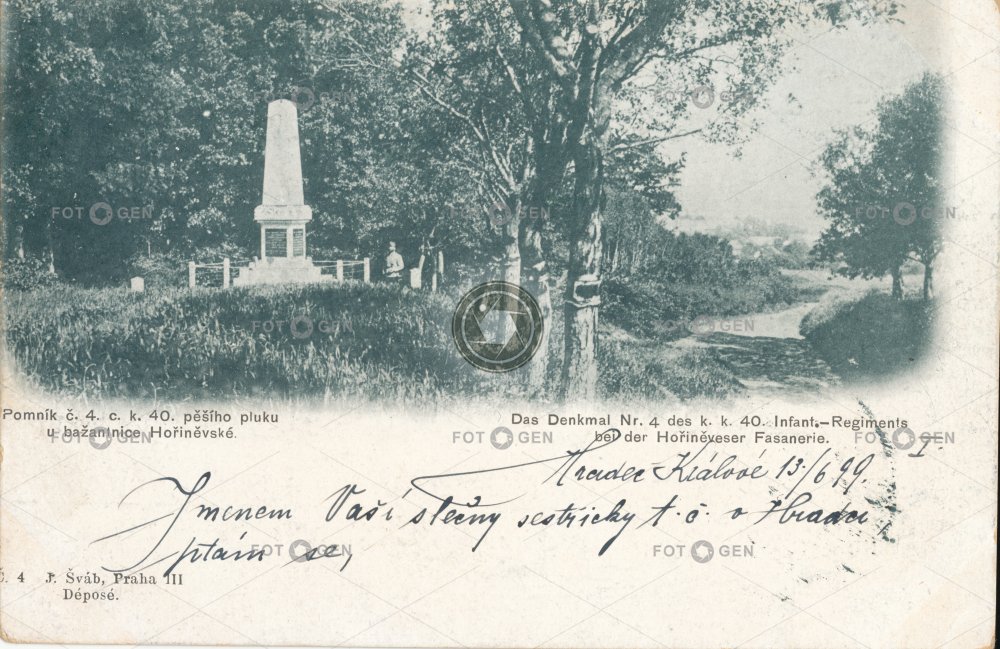 Pomník č. 4. c. k. 40. pěšího pluku
u bažantnice Hořiněvské.
Das Denkmal Nr. 4 des k. k. 40. Infant.-Regiments
bei der Hořiněveser Fasanerie.
I.
Hradec Králové 13/6 99.
Jmenem Vaší slečny sestřičky t. č. v Hradci
ptám se,
Č. 4 J. Šváb, Praha III
Déposé.
FOTOGEN